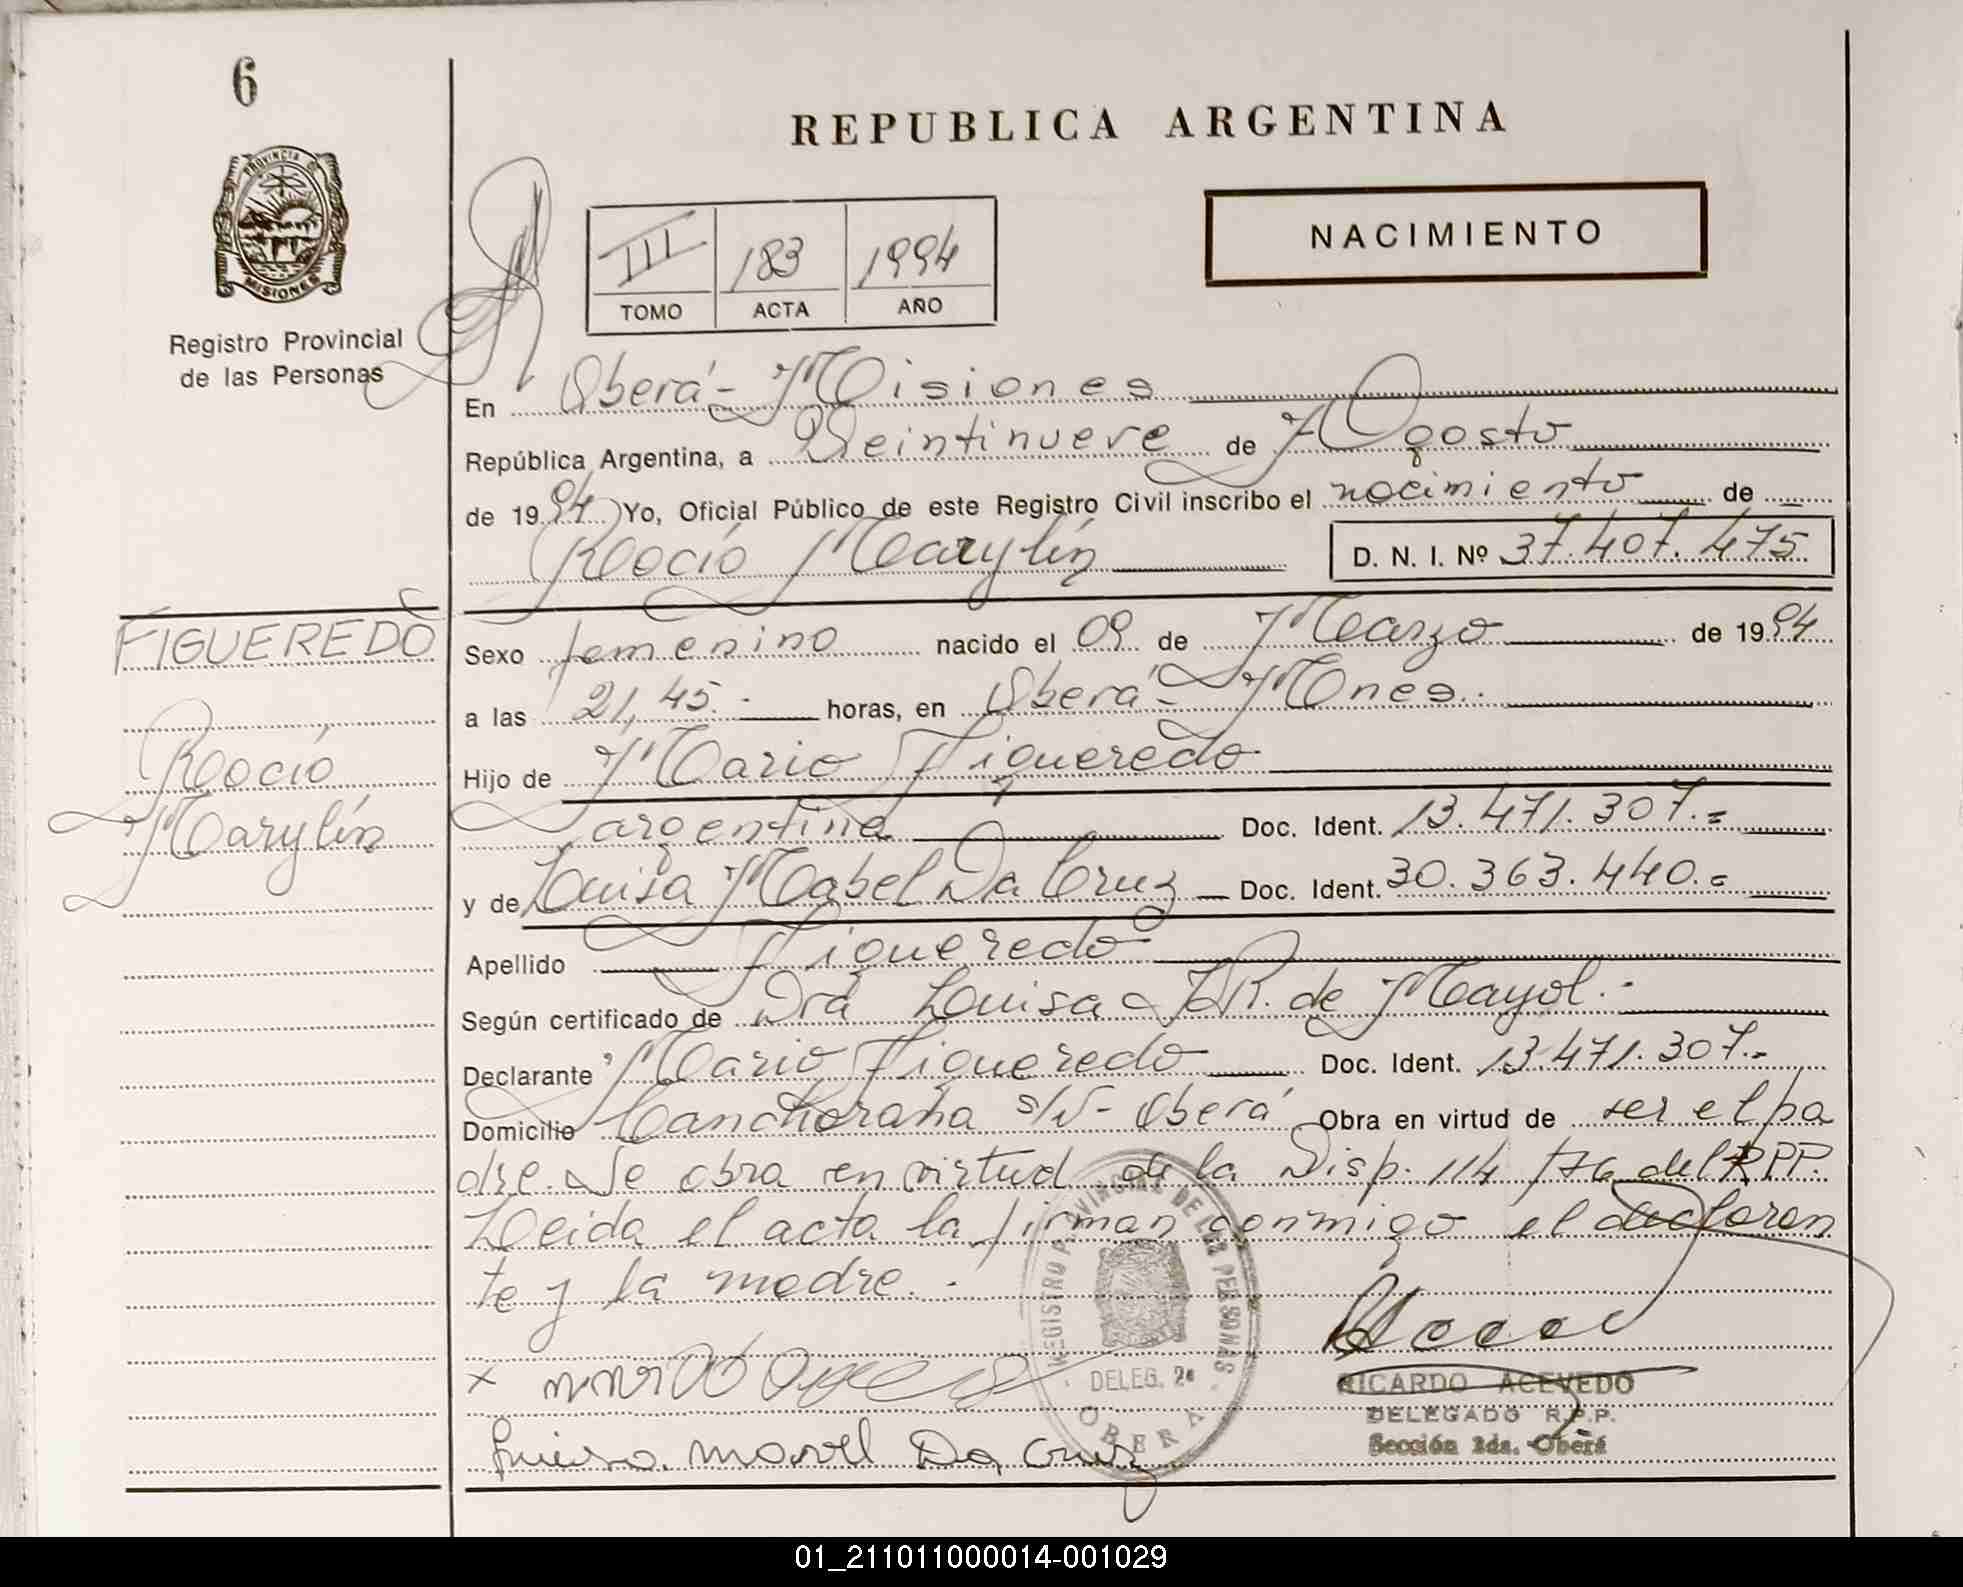 6
REPUBLICA ARGENTINA
PROVINCIA DE
MISIONES
Registro Provincial
de las Personas
III 183 1994
TOMO ACTA AÑO
NACIMIENTO
En Oberá - Misiones
República Argentina, a Veintinueve de Agosto
de 1994 Yo, Oficial Público de este Registro Civil inscribo el nacimiento de
Rocío Marylín D. N. I. Nº 37.407.475
FIGUEREDO
Rocío
Marylín
Sexo femenino nacido el 09 de Marzo de 1994
a las 21,45.- horas, en Oberá - Mnes.
Hijo de Mario Figueredo
argentina Doc. Ident. 13.471.307.=
y de Luisa Mabel Da Cruz Doc. Ident. 30.363.440.=
Apellido Figueredo
Según certificado de Dra Luisa R. de Mayol.-
Declarante Mario Figueredo Doc. Ident. 13.471.307.-
Domicilio s/n - Oberá Obra en virtud de ser el pa
dre. Se obra en virtud de la Disp. 114/76 del RPP.
Leida el acta la firman conmigo el declaran
te y la madre.-
x
Da Cruz
REGISTRO PROVINCIAL DE LAS PERSONAS
DELEG. 2a
OBERA
RICARDO ACEVEDO
DELEGADO R.P.P.
Sección 2da. Oberá
01_211011000014-001029